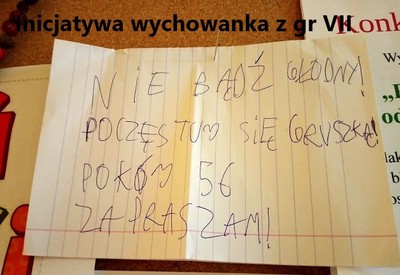 Inicjatywa wychowanka z gr VII
Konk
NIE BĄDŹ GŁODNY!
POCZĘSTUJ SIĘ GRUSZKĄ!
POKÓJ 56
ZAPRASZAM!
Wy
od